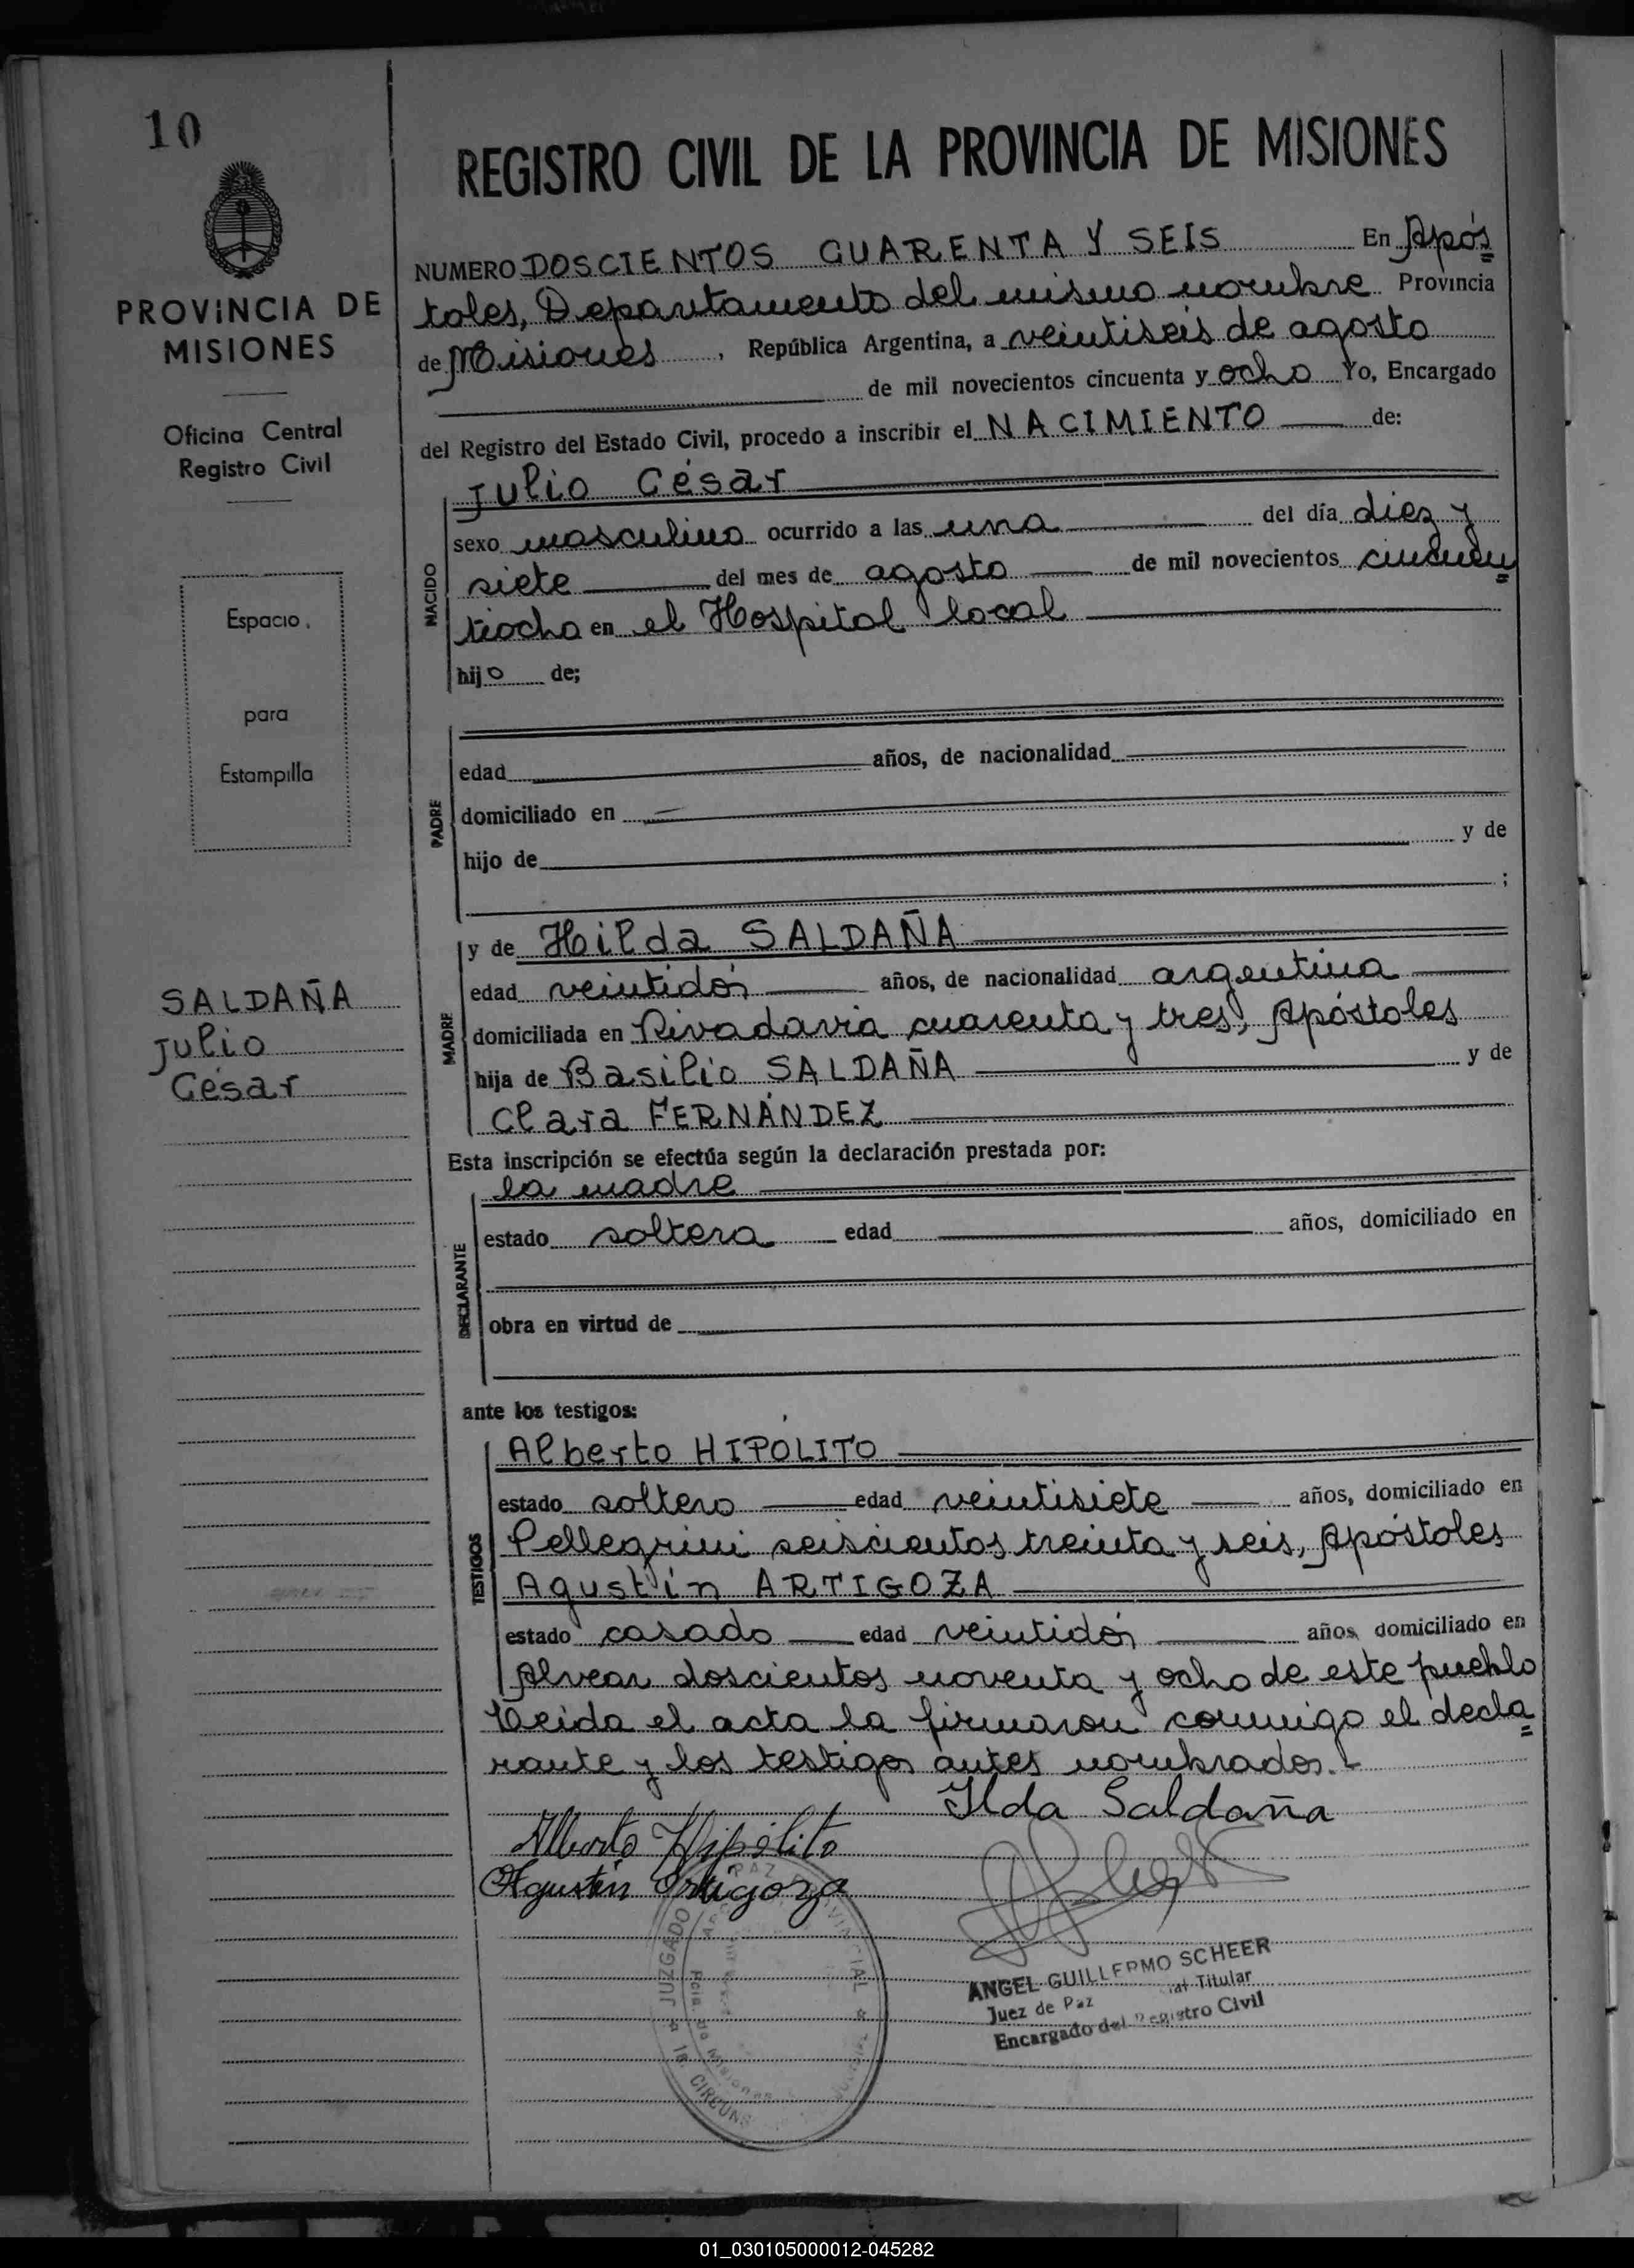 10
PROVINCIA DE
MISIONES
Oficina Central
Registro Civil
Espacio
para
Estampilla
SALDAÑA
Julio
César
REGISTRO CIVIL DE LA PROVINCIA DE MISIONES
NUMERO DOSCIENTOS CUARENTA Y SEIS En Após
toles, Departamento del mismo nombre Provincia
de Misiones, República Argentina, a veintiseis de agosto
de mil novecientos cincuenta y ocho Yo, Encargado
del Registro del Estado Civil, procedo a inscribir el NACIMIENTO de:
Julio César
sexo masculino ocurrido a las una del día diez y
siete del mes de agosto de mil novecientos cincuen
tiocho en el Hospital local
hijo de;
NACIDO
edad años, de nacionalidad
domiciliado en
hijo de y de
;
PADRE
y de Hilda SALDAÑA
edad veintidós años, de nacionalidad argentina
domiciliada en Rivadavia cuarenta y tres, Apóstoles
hija de Basilio SALDAÑA y de
Clara FERNÁNDEZ
MADRE
Esta inscripción se efectúa según la declaración prestada por:
la madre
estado soltera edad años, domiciliado en
obra en virtud de
DECLARANTE
ante los testigos:
Alberto HIPÓLITO
estado soltero edad veintisiete años, domiciliado en
Pellegrini seiscientos treinta y seis, Apóstoles
Agustín ARTIGOZA
estado casado edad veintidós años domiciliado en
Alvear doscientos noventa y ocho de este pueblo
TESTIGOS
Leida el acta la firmaron conmigo el decla
rante y los testigos antes nombrados.-
Ilda Saldaña
Alberto Hipólito
Agustín Ortigoza
JUZGADO PAZ PROVINCIAL
Pcia. de Misiones
1a CIRCUNS
ANGEL GUILLERMO SCHEER
Juez de Paz Titular
Encargado del Registro Civil
01_030105000012-045282